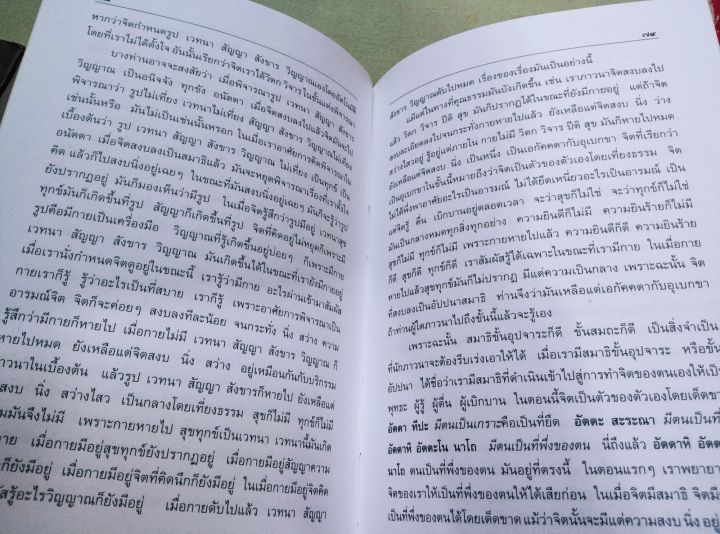 หากว่าจิตกำหนดรูป เวทนา สัญญา สังขาร วิญญาณเองโดยอัตโนมัติ
โดยที่เราไม่ได้ตั้งใจ อันนั้นเรียกว่าจิตเราได้วิตกวิจารในชั้นแห่งพิจารณา
บางท่านอาจจะสงสัยว่า เมื่อพิจารณารูป เวทนา สัญญา สังขาร
วิญญาณ เป็นอนิจจัง ทุกขัง อนัตตา เมื่อจิตสงบลงไปแล้วจิตมันจะไป
พิจารณาว่า รูปไม่เที่ยง เวทนาไม่เที่ยง สัญญา สังขาร วิญญาณไม่เที่ยง
เช่นนั้นหรือ มันไม่เป็นเช่นนั้นหรอก ในเมื่อเราอาศัยการคิดพิจารณาใน
เบื้องต้นว่า รูป เวทนา สัญญา สังขาร วิญญาณ ไม่เที่ยง เป็นทุกข์ เป็น
อนัตตา เมื่อจิตสงบลงเป็นสมาธิแล้ว มันจะหยุดพิจารณาเรื่องที่เราตั้งใจ
คิด แล้วก็ไปสงบนิ่งอยู่เฉยๆ ในขณะที่มันสงบนิ่งอยู่เฉยๆ
ยังปรากฏอยู่ มันก็มองเห็นว่ามีรูป ในเมื่อจิตรู้สึกว่ารูปมีอยู่ เวทนาสุข
ทุกข์มันก็เกิดขึ้นที่รูป สัญญาก็เกิดขึ้นที่รูป จิตที่คิดอยู่ไม่หยุดก็เพราะมี
รูปคือมีกายเป็นเครื่องมือ วิญญาณที่รู้เกิดขึ้นอยู่บ่อยๆ ก็เพราะมีกาย
เวทนา สัญญา สังขาร วิญญาณ มันเกิดขึ้นได้ในขณะที่เรายังมีกายอยู่
เมื่อเรานั่งกำหนดจิตดูอยู่ในขณะนี้ เรารู้ว่ามีกาย อะไรผ่านเข้ามาสัมผัส
กายเราก็รู้ รู้ว่าอะไรเป็นที่สบาย เราก็รู้ เพราะอาศัยการพิจารณาเป็น
อารมณ์จิต จิตก็จะค่อยๆ สงบลงทีละน้อย จนกระทั่ง นิ่ง สว่าง ความ
รู้สึกว่ามีกายก็หายไป เมื่อกายไม่มี เวทนา สัญญา สังขาร วิญญาณ ก็
หายไปหมด ยังเหลือแต่จิตสงบ นิ่ง สว่าง อยู่เหมือนกันกับบริกรรม
าวนาในเบื้องต้น แล้วรูป เวทนา สัญญา สังขารก็หายไป ยังเหลือแต่
สงบ นิ่ง สว่างไสว เป็นกลางโดยเที่ยงธรรม สุขก็ไม่มี ทุกข์ก็ไม่มี
มมันจึงไม่มี เพราะกายหายไป สุขทุกข์เป็นเวทนา เวทนานี้มันเกิด
กาย เมื่อกายมีอยู่สุขทุกข์ยังปรากฏอยู่ เมื่อกายมีอยู่สัญญาความ
ก็ยังมีอยู่ เมื่อกายมีอยู่จิตที่คิดนึกก็ยังมีอยู่ ในเมื่อกายมีอยู่จิตคิด
สรู้อะไรวิญญาณก็ยังมีอยู่ เมื่อกายดับไปแล้ว เวทนา สัญญา
๗๙
สังขาร วิญญาณดับไปหมด เรื่องของเรื่องมันเป็นอย่างนี้
แม้แต่ในทางที่คุณธรรมมันบังเกิดขึ้น เช่น เราภาวนาจิตสงบลงไป
แล้ว วิตก วิจาร ปีติ สุข มันก็ปรากฏได้ในขณะที่ยังมีกายอยู่ แต่ถ้าจิต
สงบละเอียดลงไปจนกระทั่งกายหายไปแล้ว ยังเหลือแต่จิตสงบ นิ่ง ว่าง
สว่างไสวอยู่ รู้อยู่แต่ภายใน กายไม่มี วิตก วิจาร ปีติ สุข มันก็หายไปหมด
ยังเหลือแต่จิตสงบ นิ่ง เป็นหนึ่ง เป็นเอกัคตากับอุเบกขา จิตที่เรียกว่า
เป็นอุเบกขาในขั้นนี้หมายถึงว่าจิตเป็นตัวของตัวเองโดยเที่ยงธรรม จิต
ไม่ได้พึ่งพาอาศัยอะไรเป็นอารมณ์ ไม่ได้ยึดเหนี่ยวอะไรเป็นอารมณ์ เป็น
แต่จิตรู้ ตื่น เบิกบานอยู่ตลอดเวลา จะว่าสุขก็ไม่ใช่ จะว่าทุกข์ก็ไม่ใช่
มันเป็นกลางหมดทุกสิ่งทุกอย่าง ความยินดีก็ไม่มี ความยินร้ายก็ไม่มี
สุขก็ไม่มี ทุกข์ก็ไม่มี เพราะกายหายไปแล้ว ความยินดีก็ดี ความยินร้าย
ก็ดี สุขก็ดี ทุกข์ก็ดี เราสัมผัสรู้ได้เฉพาะในขณะที่เรามีกาย ในเมื่อกาย
หายไปแล้วสุขทุกข์มันก็ไม่ปรากฏ มีแต่ความเป็นกลาง เพราะฉะนั้น จิต
ที่สงบลงเป็นอัปปนาสมาธิ ท่านจึงว่ามันเหลือแต่เอกัคคตากับอุเบกขา
ถ้าท่านผู้ใดภาวนาไปถึงขั้นนี้แล้วจะรู้เอง
เพราะฉะนั้น สมาธิขั้นอุปจาระก็ดี ขั้นสมถะก็ดี เป็นสิ่งจำเป็น
ที่นักภาวนาจะต้องรีบเร่งเอาให้ได้ เมื่อเรามีสมาธิขั้นอุปจาระ หรือขั้น
อัปปนา ได้ชื่อว่าเรามีสมาธิที่ดำเนินเข้าไปสู่การทำจิตของตนเองให้เป็น
พุทธะ ผู้รู้ ผู้ตื่น ผู้เบิกบาน ในตอนนี้จิตเป็นตัวของตัวเองโดยเด็ด
อัตตา ทีปะ มีตนเป็นเกราะคือเป็นที่ยึด อัตตะ สะระณา มีตนเป็นที่
อัตตาหิ อัตตะโน นาโถ มีตนเป็นที่พึ่งของตน นี่ถึงแล้ว อัตตาหิ อัตต
นาโถ ตนเป็นที่พึ่งของตน มันอยู่ที่ตรงนี้ ในตอนแรกๆ เราพยายา
จิตของเราให้เป็นที่พึ่งของตนให้ได้เสียก่อน ในเมื่อจิตมีสมาธิ จิตม
เป็นที่พึ่งของตนได้โดยเด็ดขาด แม้ว่าจิตนั้นจะมีแต่ความสงบ นิ่ง อยู่